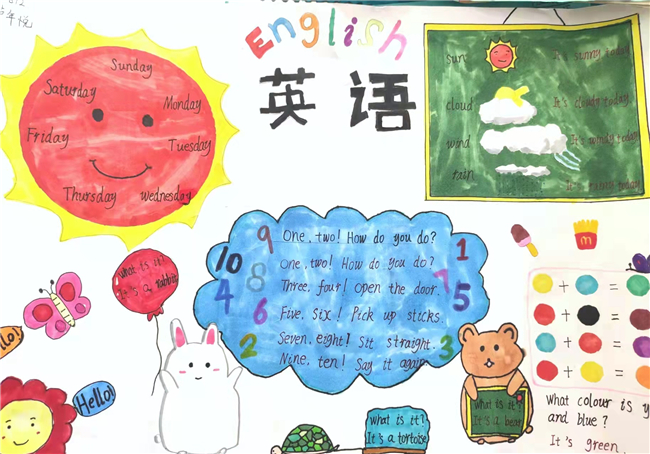 English
英语
Sunday
Saturday
Monday
Friday
Tuesday
Thursday
wednesday
sun
It's sunny today
cloud
It's cloudy today
wind
It's windy today
rain
9
One, two! How do you do?
1
10
One, two! How do you do?
8
7
4
Three, four! open the door.
5
6
Five, six! Pick up sticks.
2
Seven, eight! Sit straight.
3
Nine, ten! Say it again
what is it?
It's a rabbit
llo!
Hello!
what is it?
It's a tortoise
what is it?
It's a bear
M
+ =
+ =
+ =
+ =
what colour is y
and blue?
It's green.